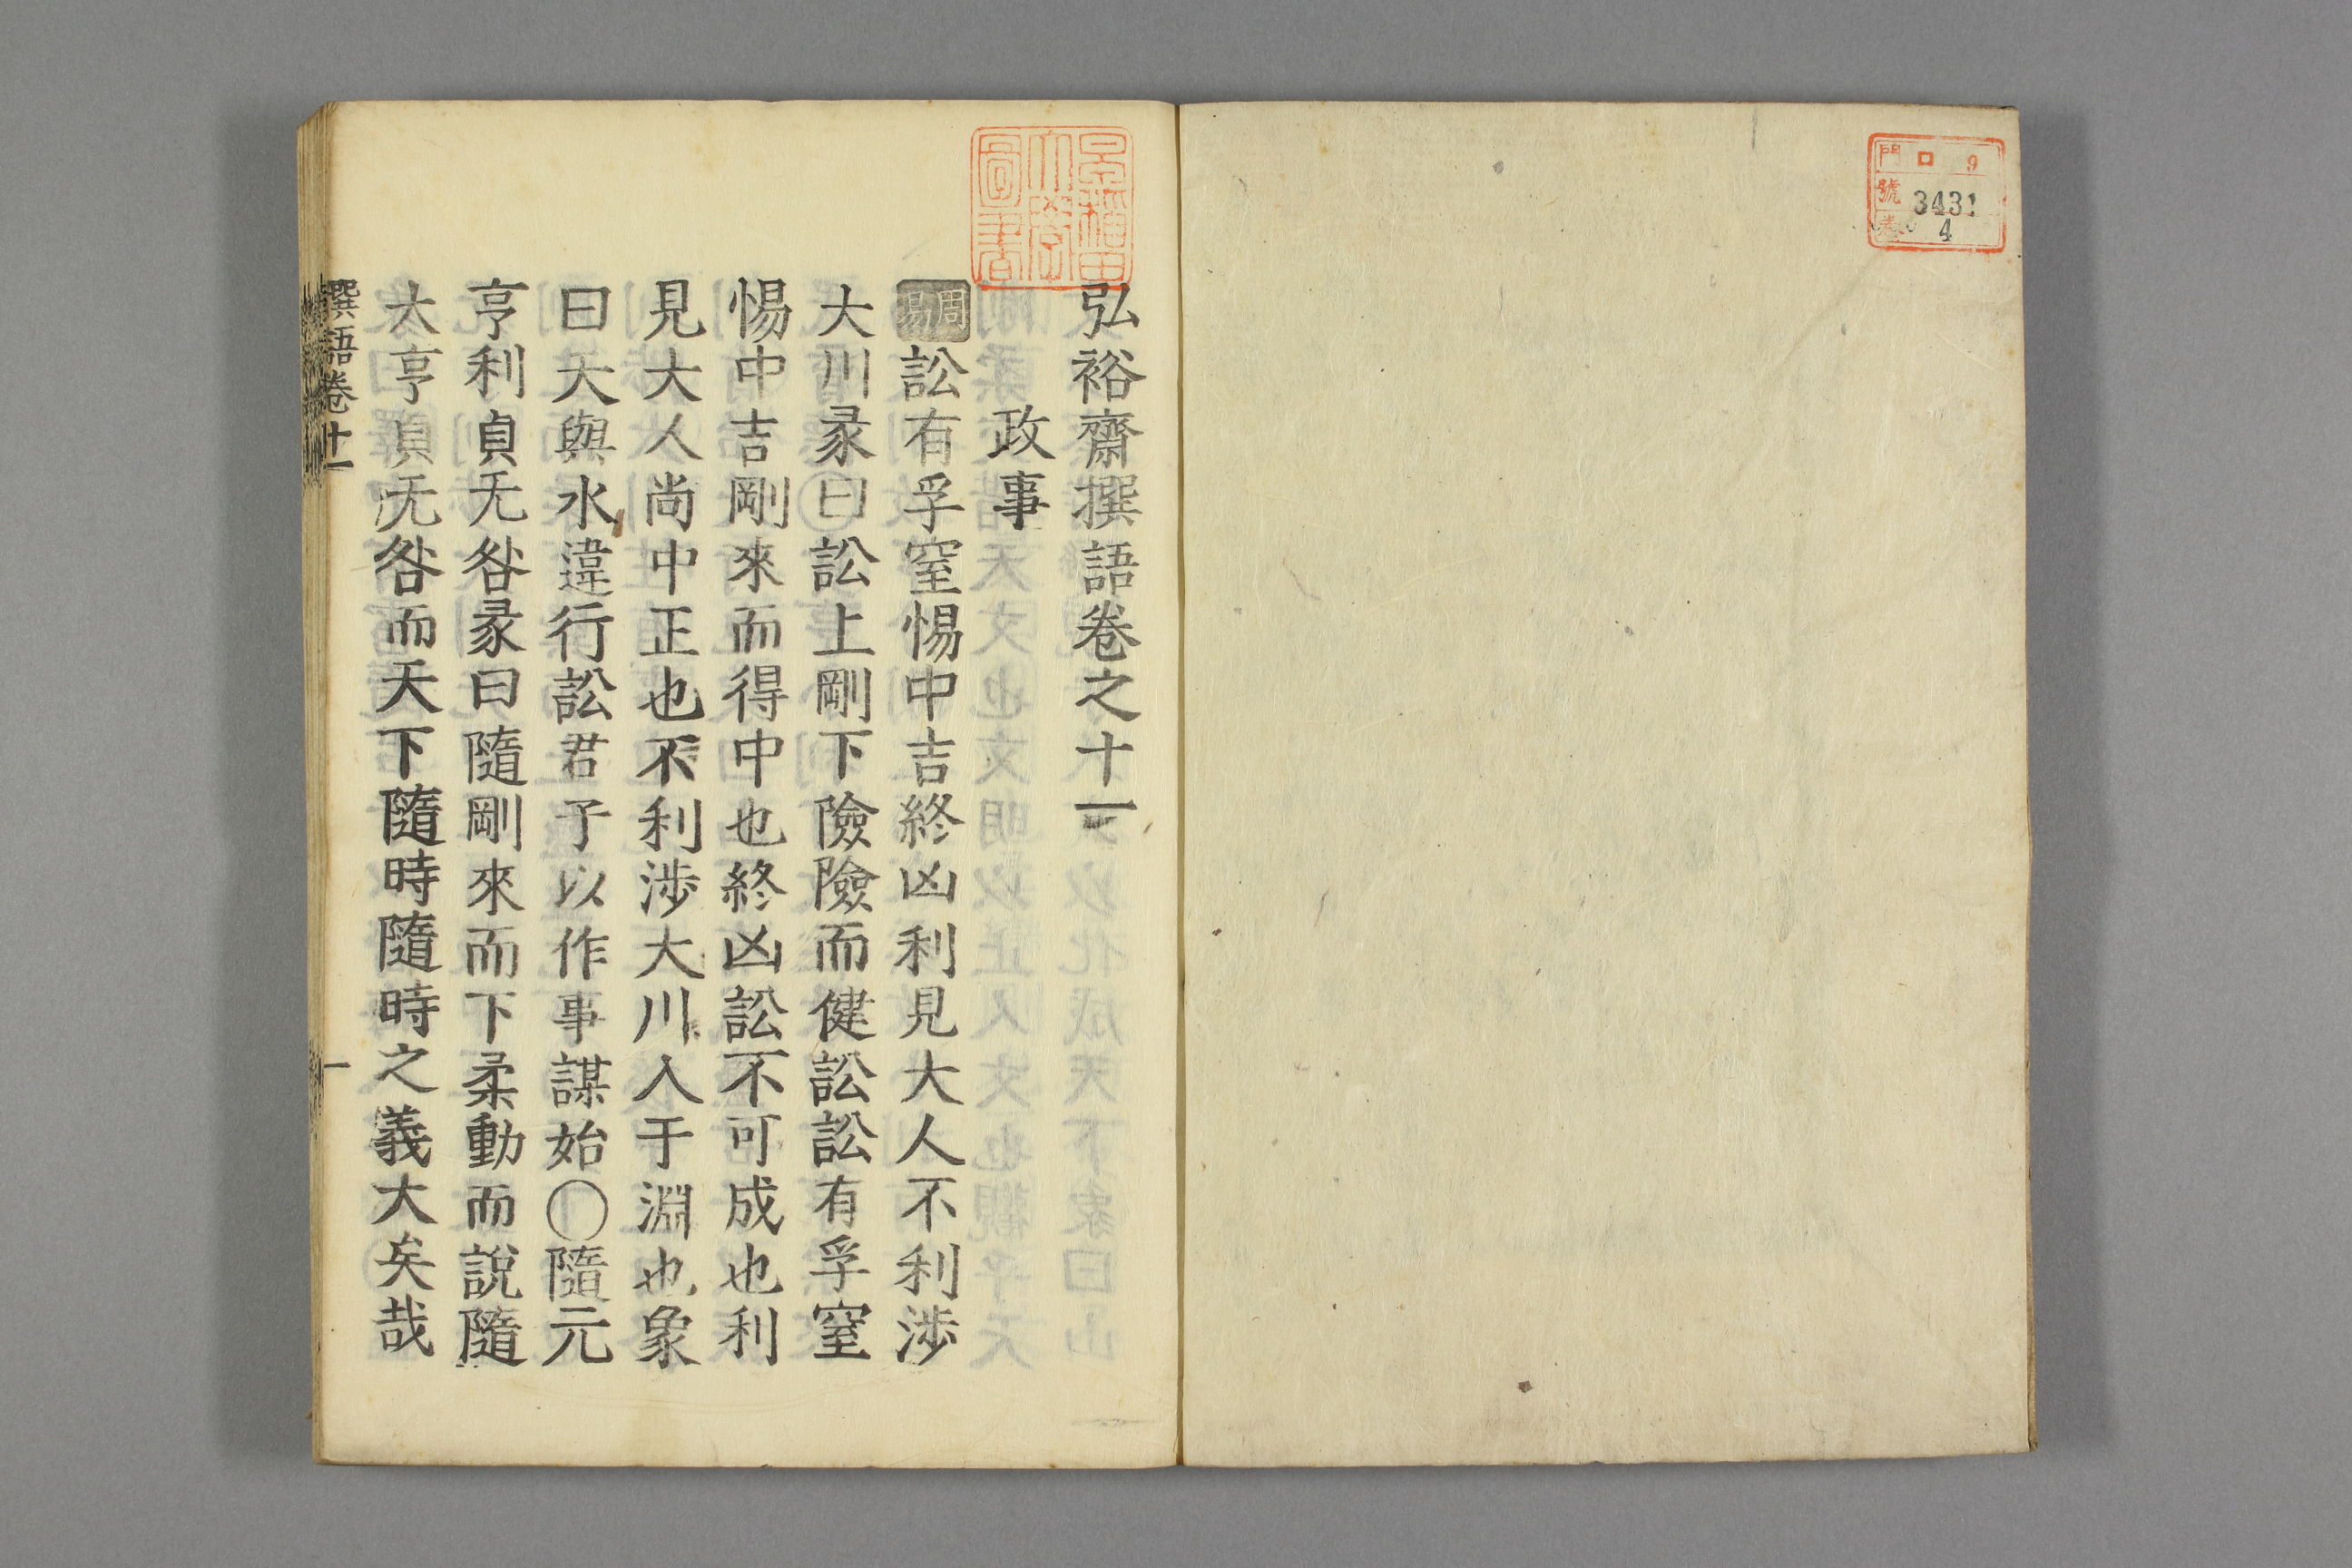 門 口 9
號 3431
卷 4
早稲田
大學
圖書
弘裕齋撰語卷之十一
政事
周易訟有孚窒惕中吉終凶利見大人不利涉
大川彖曰訟上剛下險險而健訟訟有孚窒
惕中吉剛來而得中也終凶訟不可成也利
見大人尚中正也不利涉大川入于淵也象
曰天與水違行訟君子以作事謀始○隨元
亨利貞无咎彖曰隨剛來而下柔動而說隨
大亨貞无咎而天下隨時隨時之義大矣哉
撰語卷十一
一